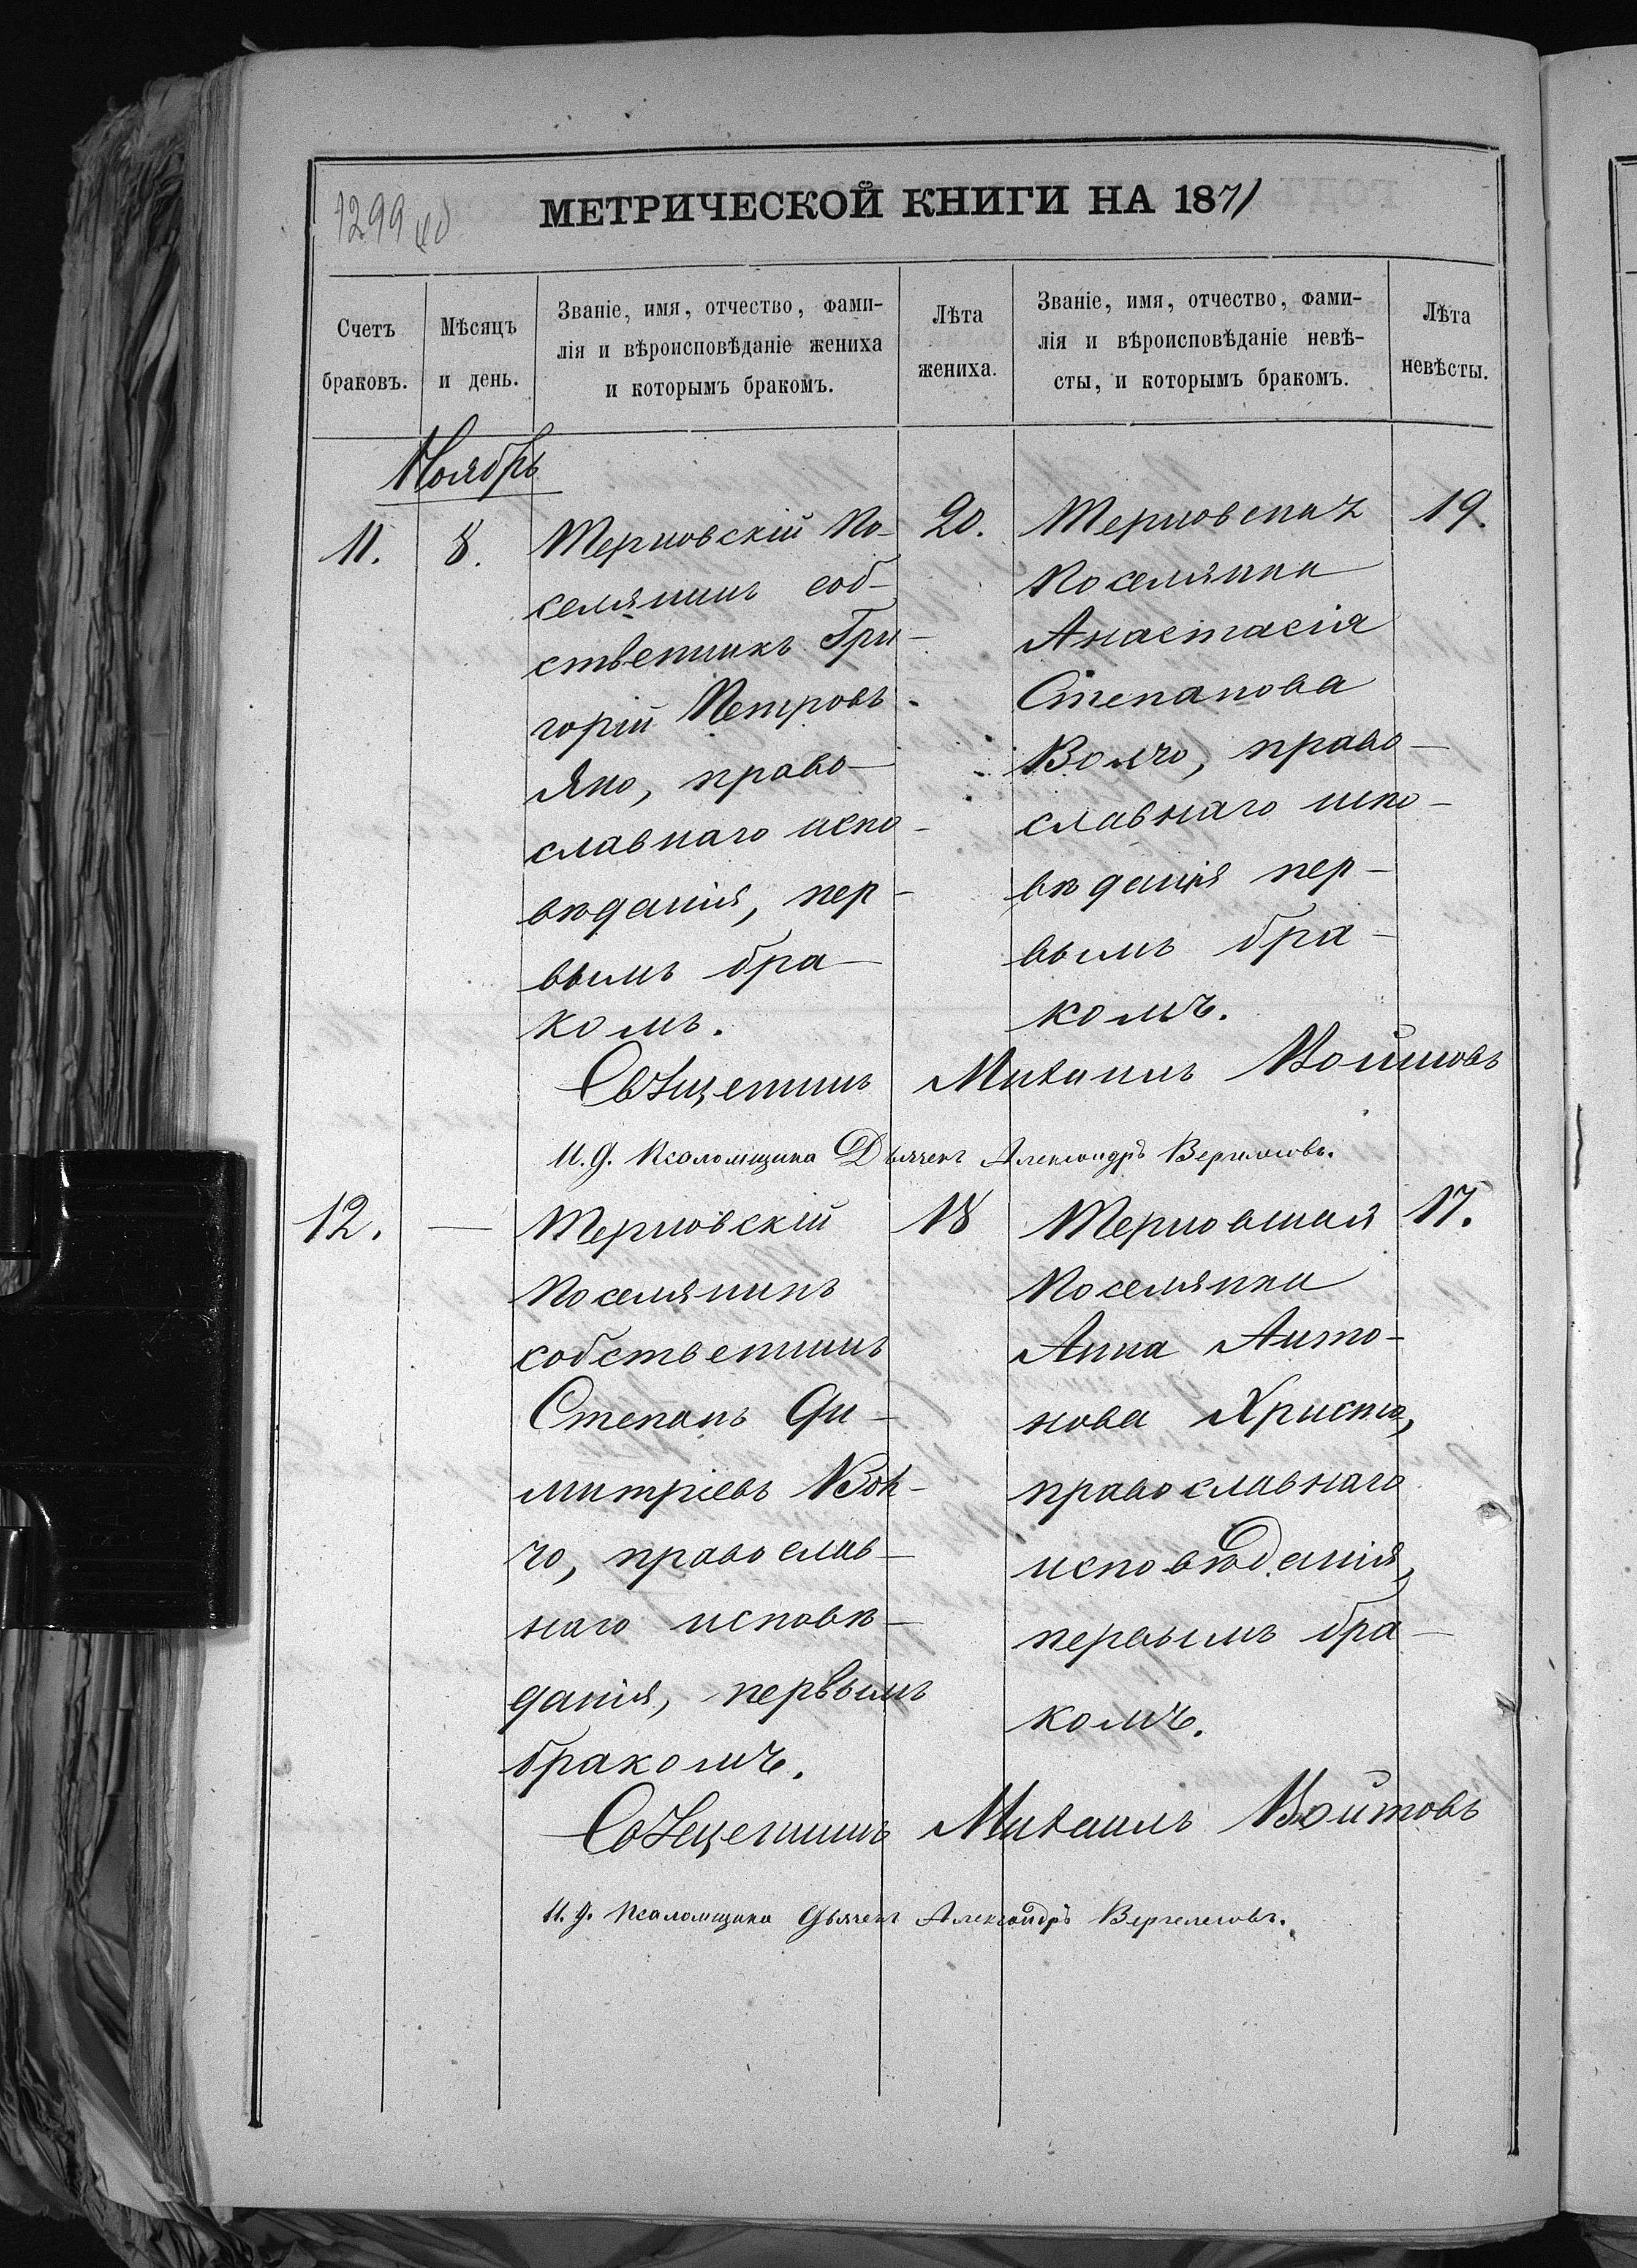 1299 об
МЕТРИЧЕСКОЙ КНИГИ НА 1871
Счетъ
браковъ.
Мѣсяцъ
и день.
Званіе, имя, отчество, фами-
лія и вѣроисповѣданіе жениха
и которымъ бракомъ.
Лѣта
жениха.
Званіе, имя, отчество, фами-
лія и вѣроисповѣданіе невѣ-
сты, и которымъ бракомъ.
Лѣта
невѣсты.
Ноябрь
11.
8.
Терновскій по-
селянинъ соб-
ственникъ Гри-
горій Петровъ
Яно, право-
славнаго испо-
вѣданія, пер-
вымъ бра-
комъ.
20.
Терновская
поселянка
Анастасія
Степанова
Волчо, право-
славнаго испо-
вѣданія пер-
вымъ бра-
комъ.
19.
Священникъ Михаилъ Войтовъ
И. д. Псаломщика Дьячекъ Александръ
12.
—
Терновскій
поселянинъ
собственникъ
Степанъ Ди-
митріевъ Вол-
чо, православ-
наго исповѣ-
данія, первымъ
бракомъ.
18
Терновская
поселянка
Анна Анто-
нова Христо,
православнаго
исповѣданія,
первымъ бра-
комъ.
17.
Священникъ Михаилъ Войтовъ
И. д. Псаломщика Дьячекъ Александръ